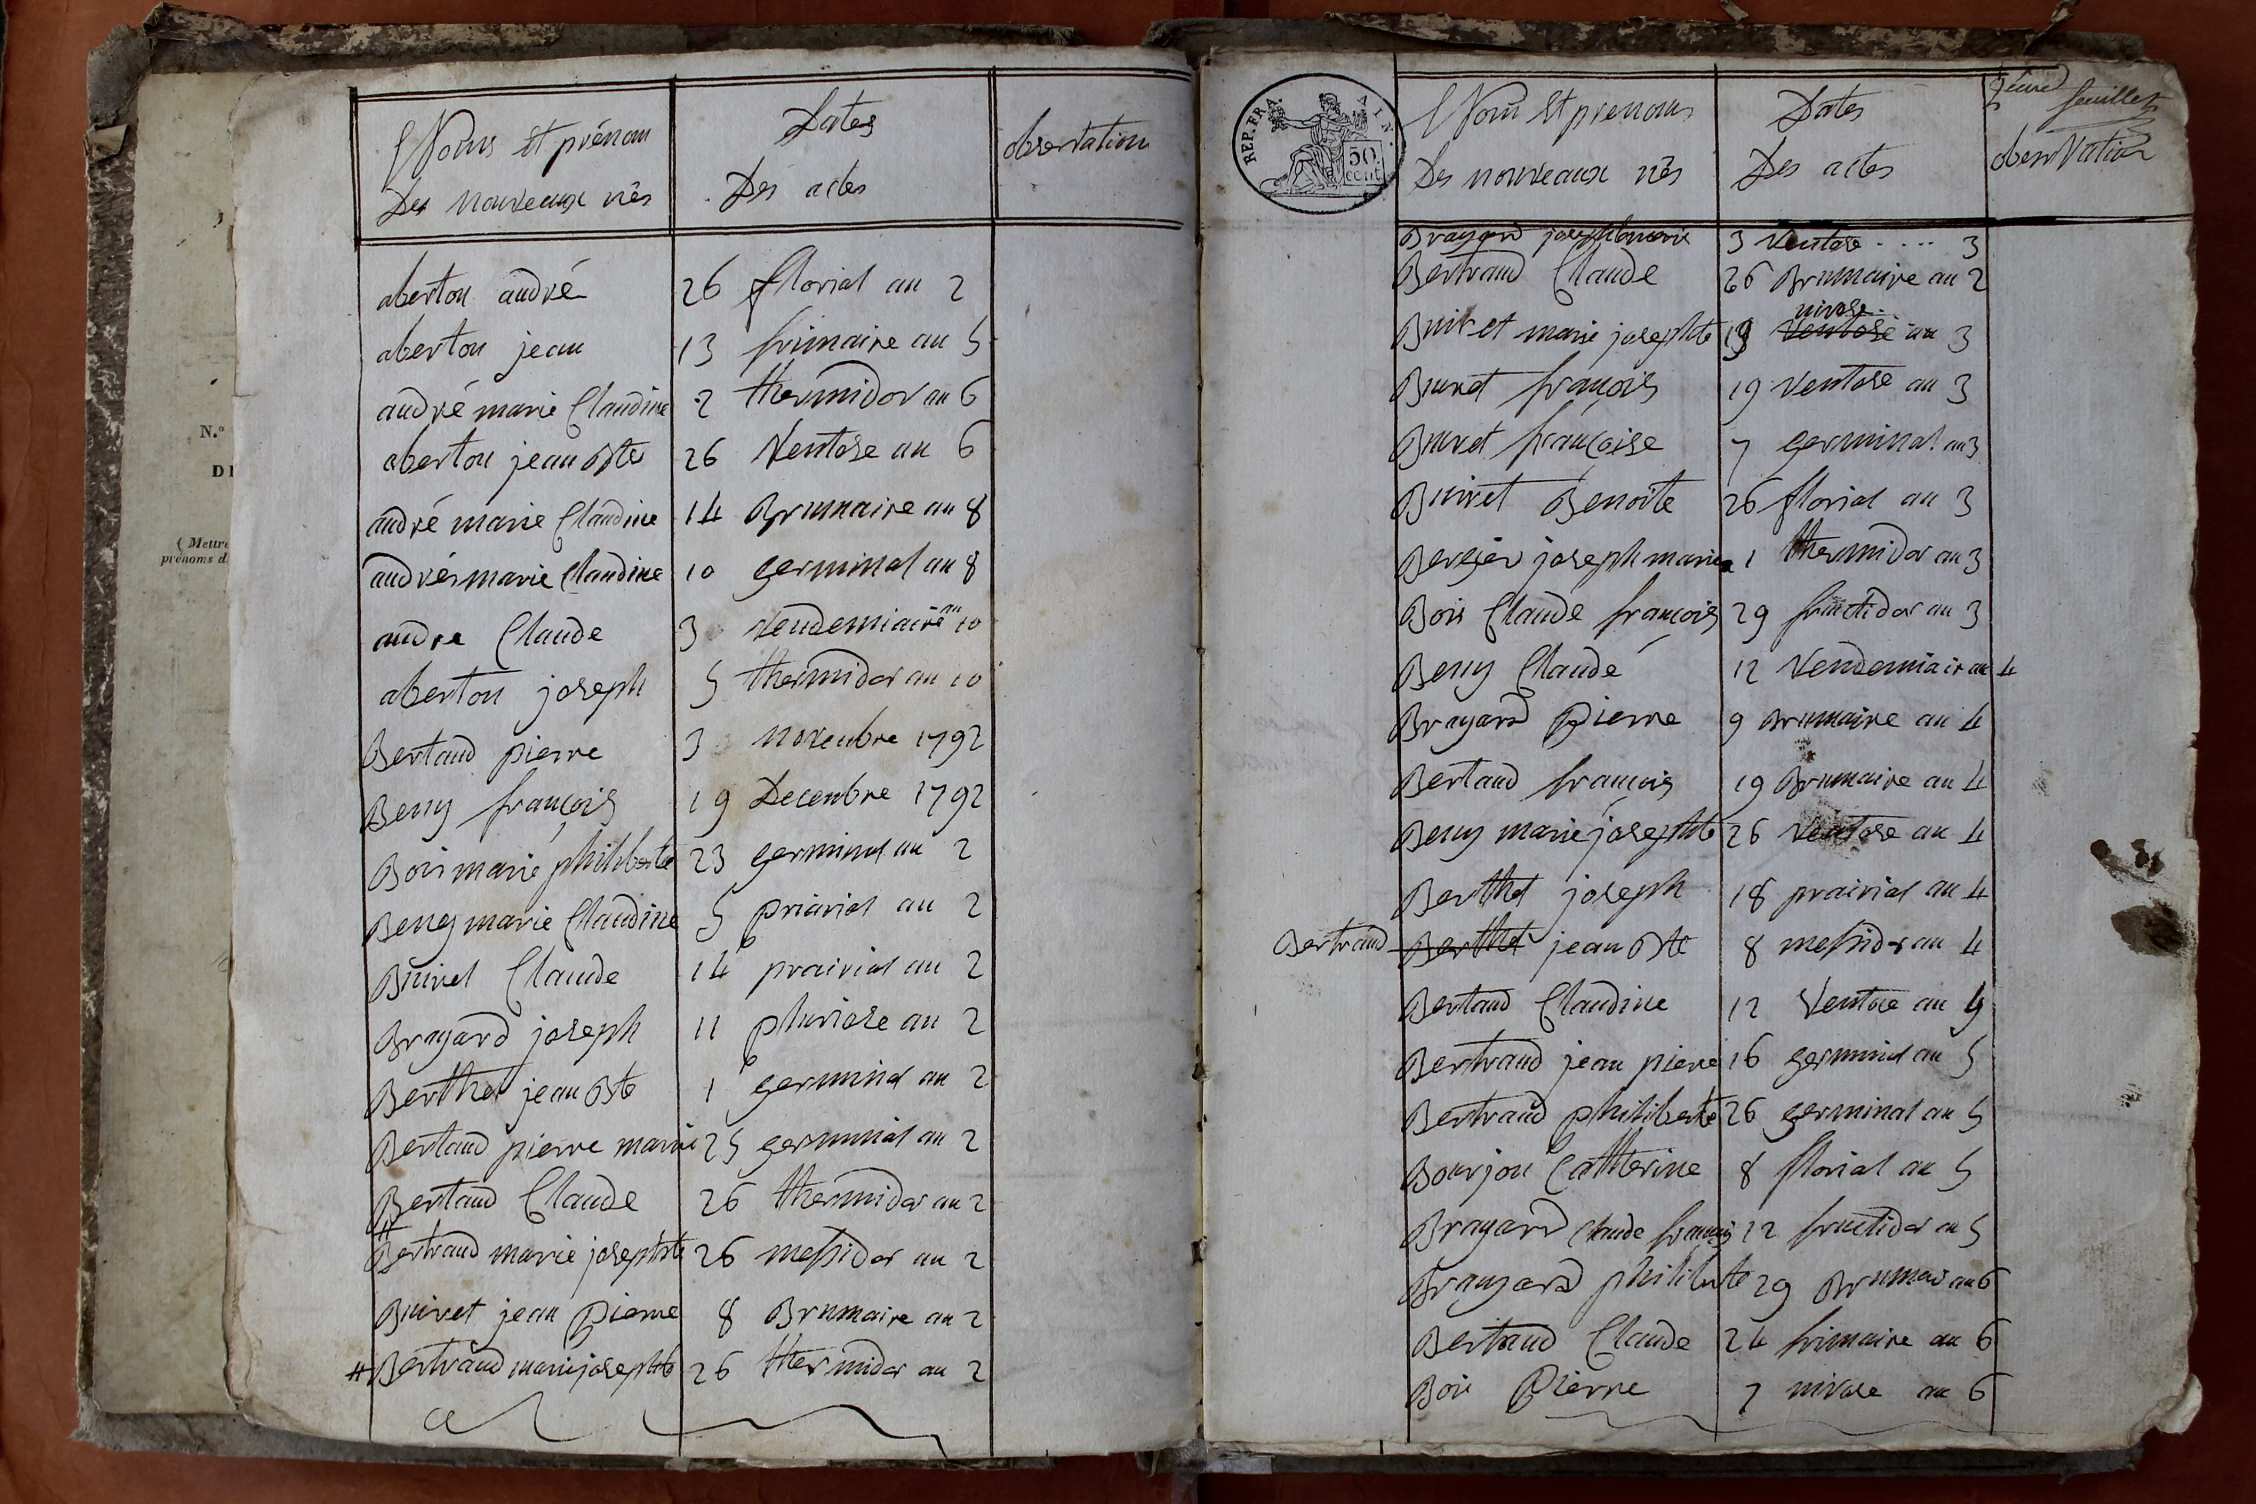 N.º
DE
(Mettre
prénoms d
Noms et prénom
Des nouveaux nés
Dates
Des actes
observation
aberton andré 26 florial an 2
aberton jean 13 frimaire an 5
andré marie Claudine 2 thermidor an 6
aberton jean Bte 26 Ventose an 6
andré marie Claudine 14 Brumaire an 8
andrés marie Claudine 10 germinal an 8
andre Claude 3 vendemiaire an 10
aberton joseph 5 thermidor an 10
Bertaud pierre 3 novembre 1792
Beny françois 19 Decembre 1792
Bois marie philiberte 23 germinal an 2
Beny marie Claudine 5 priarial an 2
Buivet Claude 14 prairial an 2
Brayard joseph 11 pluviose an 2
Berthet jean Bte 1 germinal an 2
Bertaud pierre marie 25 germinal an 2
Bertaud Claude 26 thermidor an 2
# Bertraud marie josephte 26 messidor an 2
Buivet jean Pierre 8 Brumaire an 2
# Bertraud marie josephte 26 thermidor an 2
REP. FRA.
AIN.
50
cent
Nom Et prenoms
Des nouveaux nés
Dates
Des actes
2eme feuillet
observation
Brayard joseph marie 3 Ventose .... 3
Bertraud Claude 26 Brumaire an 2
nivose
Buivet marie josephte 19 Ventose an 3
Buivet françois 19 Ventose an 3
Buivet françoise 7 germinal an 3
Buivet Benoite 26 florial an 3
Berger joseph marie 1 thermidor an 3
Bois Claude françois 29 fructidor an 3
Beny Claude 12 Vendemiair an 4
Brayard Pierre 9 Brumaire an 4
Bertaud françois 19 Brumaire an 4
Beny marie josephte 26 Ventose an 4
Berthet joseph 18 prairial an 4
Bertraud Berthet jean Bte 8 messidor an 4
Bertaud Claudine 12 Ventose an
Bertraud jean pierre 16 germinal an 5
Bertraud philiberte 26 germinal an 5
Bourjon Catherine 8 florial an 5
Brayard Claude françois 12 fructidor an 5
Brayard philiberte 29 Brumair an 6
Bertaud Claude 24 frimaire an 6
Bois Pierre 7 nivose an 6